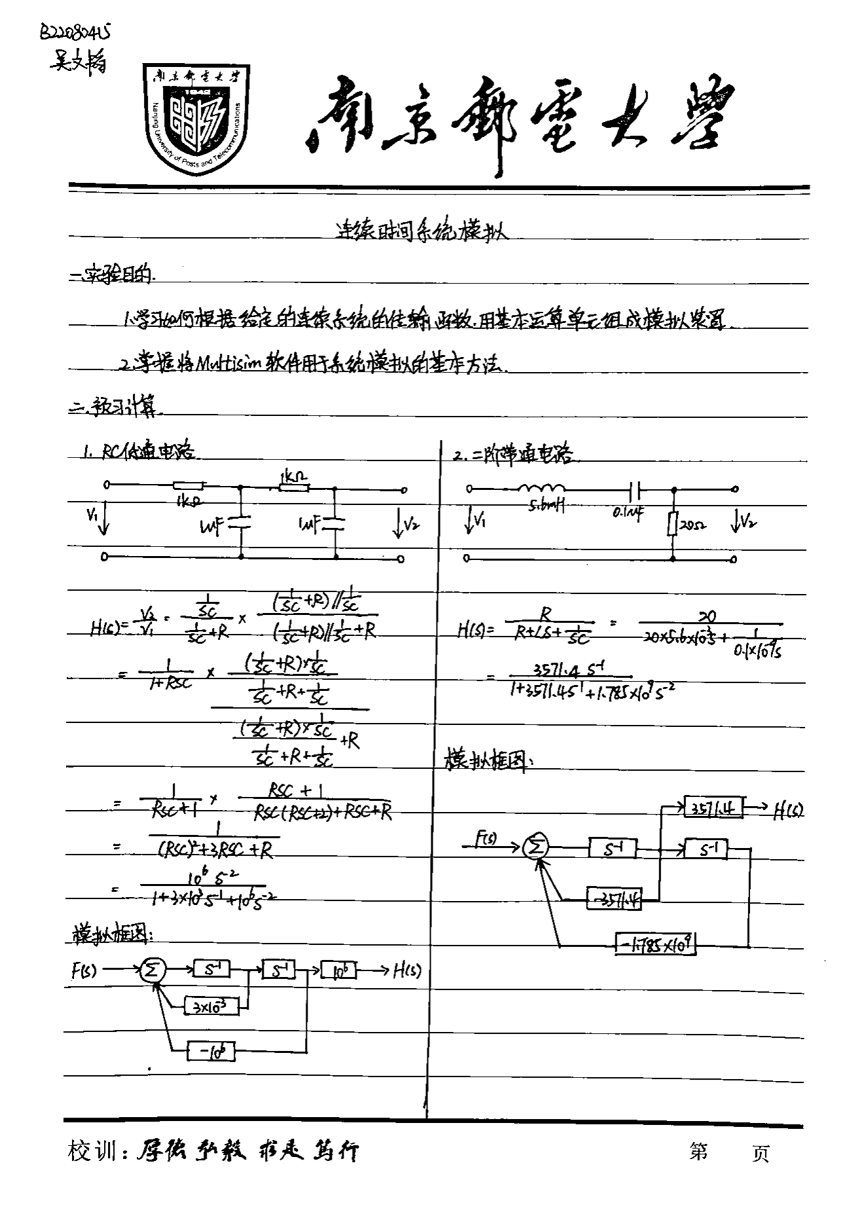 B22080415
吴文韬
南京郵電大學
1942
Nanjing University of Posts and Telecommunications
南京郵電大學
连续时间系统模拟
一.实验目的.
1.学习如何根据给定的连续系统的传输函数.用基本运算单元组成模拟装置.
2.掌握将Multisim软件用于系统模拟的基本方法.
二.预习计算.
1. RC低通电路
1kΩ 1kΩ
V1 1μF 1μF V2
H(s)= V2/V1 = (1/SC)/(1/SC+R) × ((1/SC+R)//1/SC)/((1/SC+R)//1/SC+R)
= 1/(1+RSC) × (((1/SC+R)×1/SC)/(1/SC+R+1/SC))/(((1/SC+R)×1/SC)/(1/SC+R+1/SC)+R)
= 1/(RSC+1) × (RSC+1)/(RSC(RSC+2)+RSC+R)
= 1/((RSC)²+3RSC+R)
= 10⁶S⁻²/(1+3×10³S⁻¹+10⁶S⁻²)
模拟框图:
F(s) Σ S⁻¹ S⁻¹ 10⁶ H(s)
3×10⁻³
-10⁶
2.二阶带通电路
5.6mH 0.1μF
V1 20Ω V2
H(s)= R/(R+LS+1/SC) = 20/(20×5.6×10⁻³S+1/(0.1×10⁻⁹S))
= 3571.4S⁻¹/(1+3571.4S⁻¹+1.785×10⁹S⁻²)
模拟框图:
3571.4 H(s)
F(s) Σ S⁻¹ S⁻¹
-3571.4
-1.785×10⁹
校训:厚德 弘毅 求是 笃行
第 页